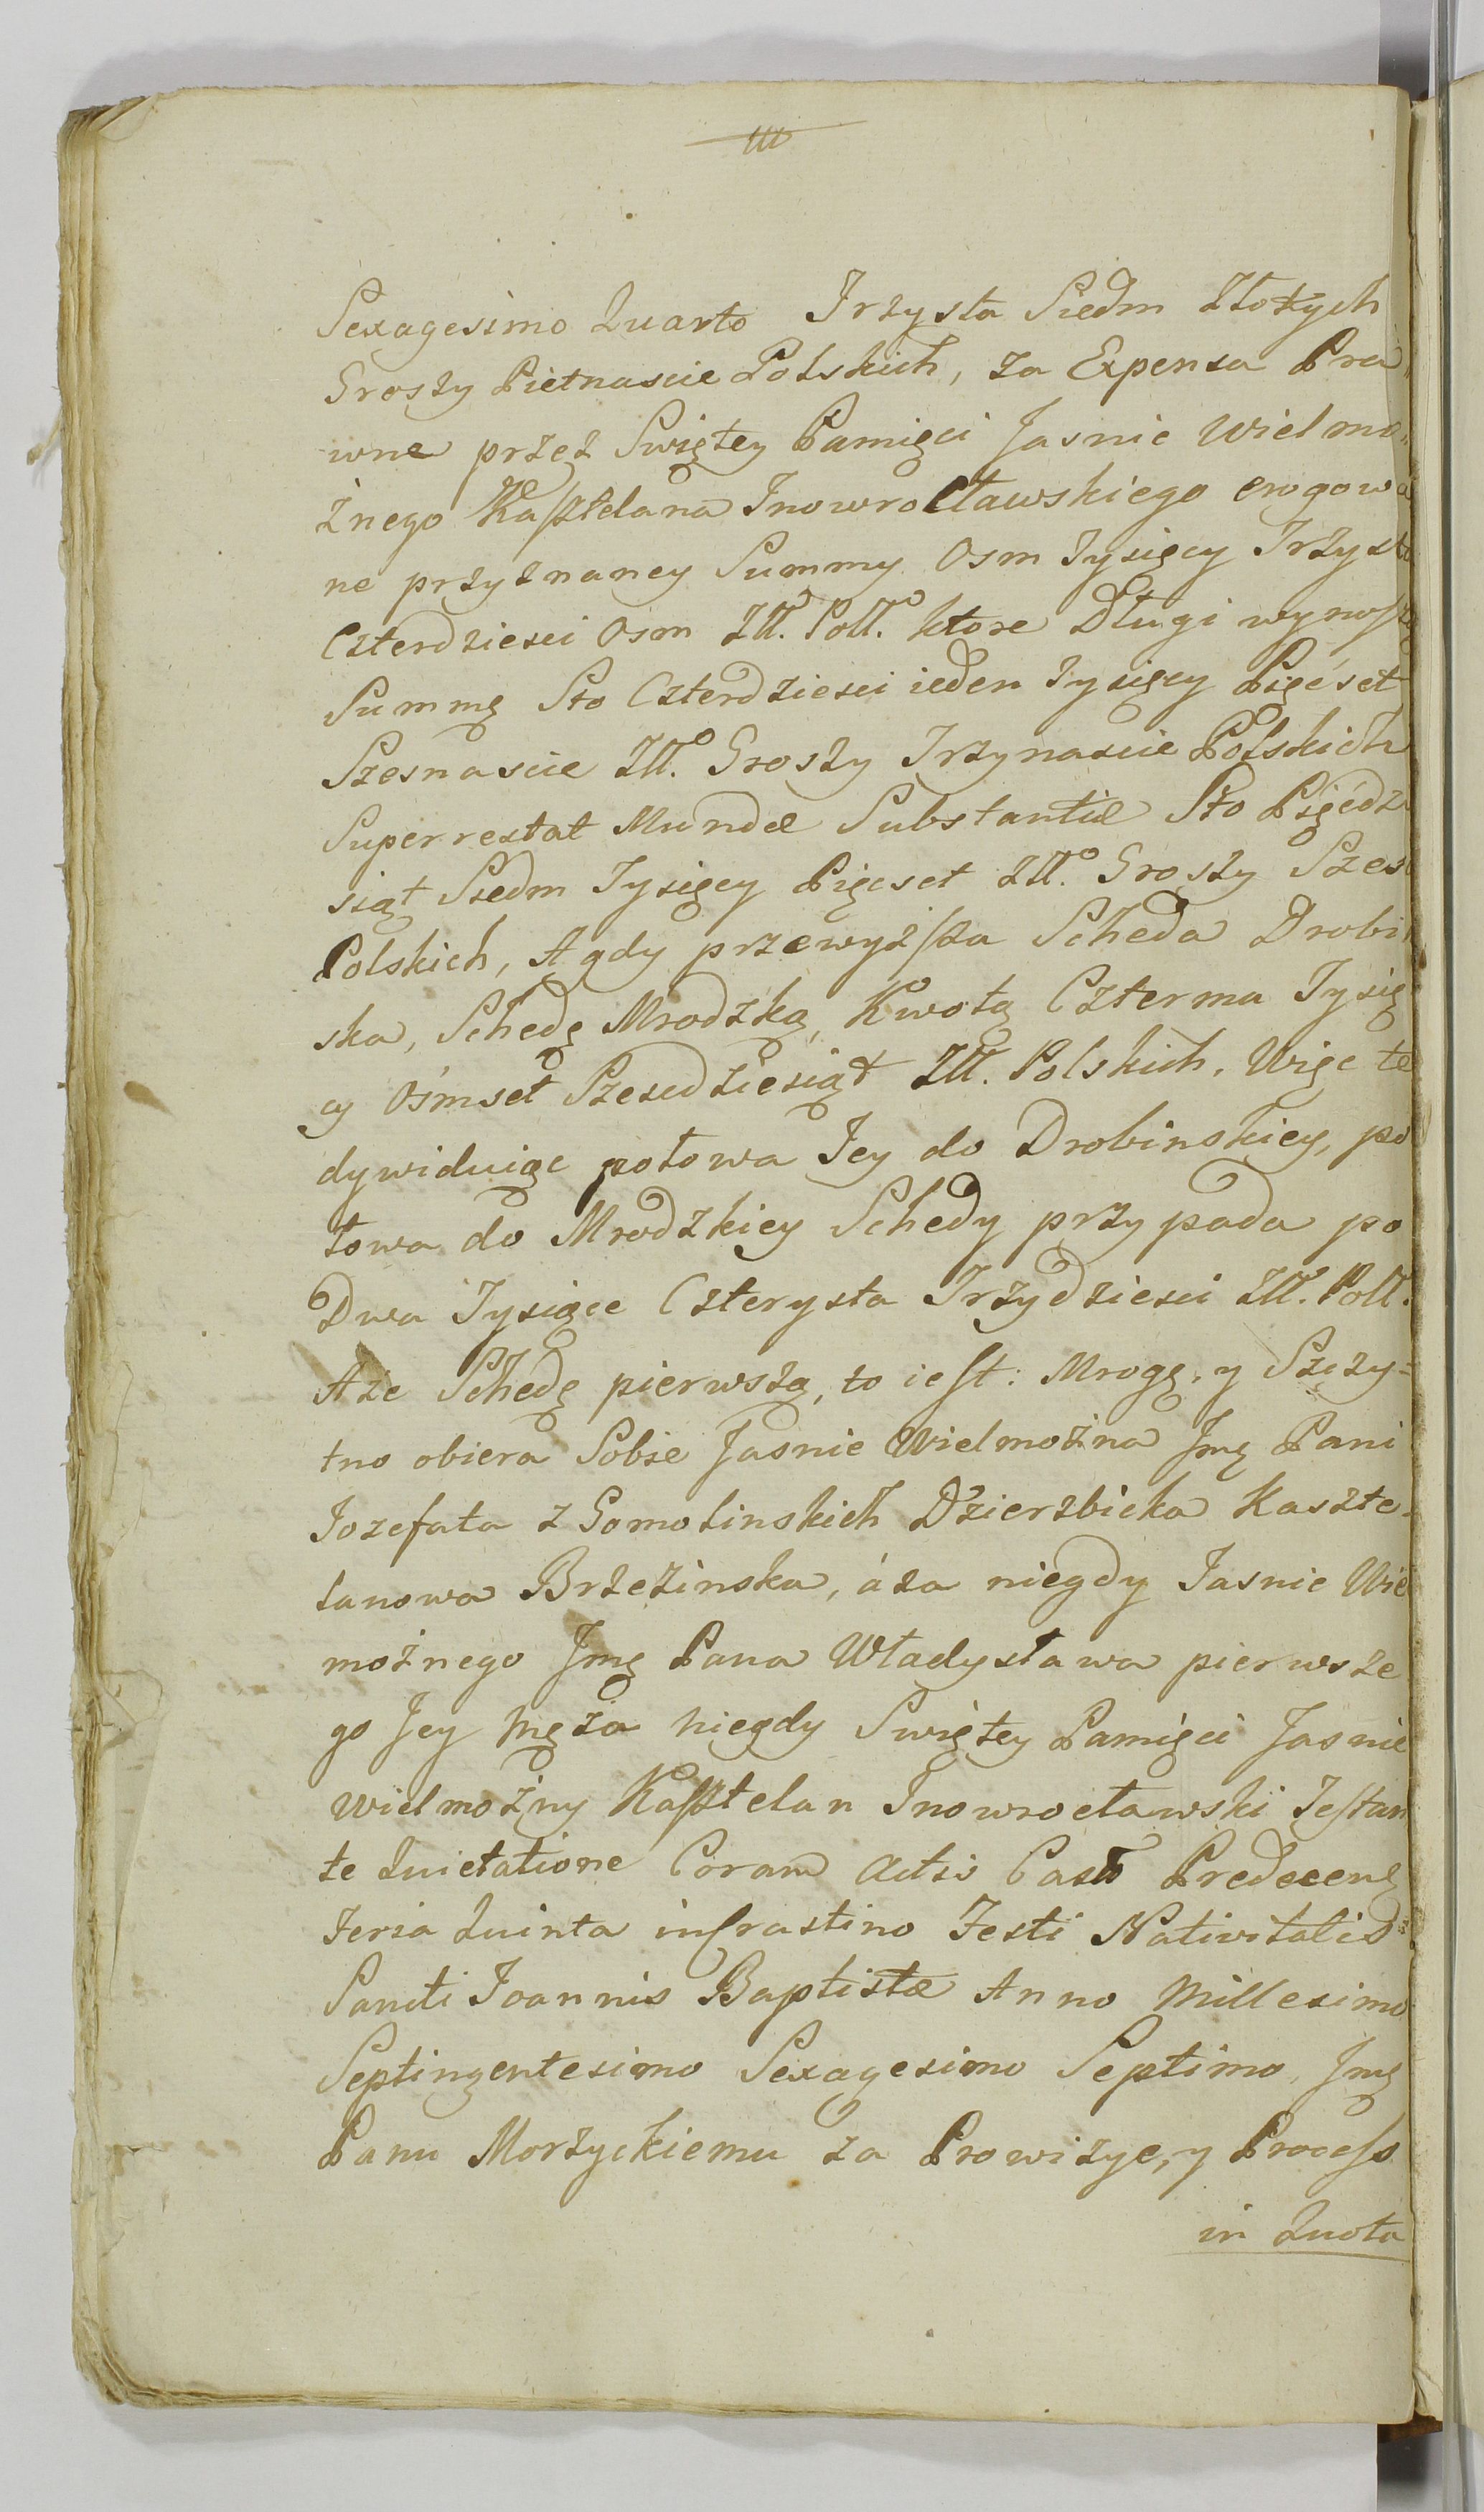 Sexagesimo Quarto Trzysta Siedm Złotych
Groszy Pietnascie Polskich, za Expensa Pra„
wne przez Swiętey Pamięci Jasnie Wielmo„
żnego Kasztelana Inowrocławskiego erogowa
ne przyznaney Summy Osm Tysięcy Trzysta
Czterdziesci Osm Zll. Poll. ktore Długi wynoszą
Summę Sto Czterdziesci ieden Tysięcy Pięćset
Szesnascie Zll. Groszy Trzynascie Polskich
Superrestat Mundæ Substantiæ Sto Pięćdzi
siąt Siedm Tysięcy Pięcset Zll. Groszy Szesc
Polskich, A gdy przewyższa Scheda Drobin
ska, Schedę Mrodzką, Kwotą Czterma Tysią
cy Ośmset Szescdziesiąt Zll. Polskich, Więc te
dywiduiąc połowa Jey do Drobinskiey, po
łowa do Mrodzkiey Schedy przypada po
Dwa Tysiące Czterysta Trzydziesci Zll. Poll.
A że Schedę pierwszą, to iest: Mrogę, y Szczy=
tno obiera Sobie Jasnie Wielmożna Jmę Pani
Jozefata z Gomolinskich Dzierzbicka Kaszte„
lanowa Brzezinska, á za niegdy Jasnie Wiel
możnego Jmę Pana Władysława pierwsze
go Jey Męża niegdy Swiętey Pamięci Jasnie
Wielmożny Kasztelan Inowrocławski Testan
te Quietatione Coram Actis Cast Predecen
Feria Quinta in Crastino Festi Nativitatis
Sancti Joannis Baptistæ Anno Millesimo
Septingentesimo Sexagesimo Septimo, Jmę
Panu Morzyckiemu za Prowizye, y Process
in Quota